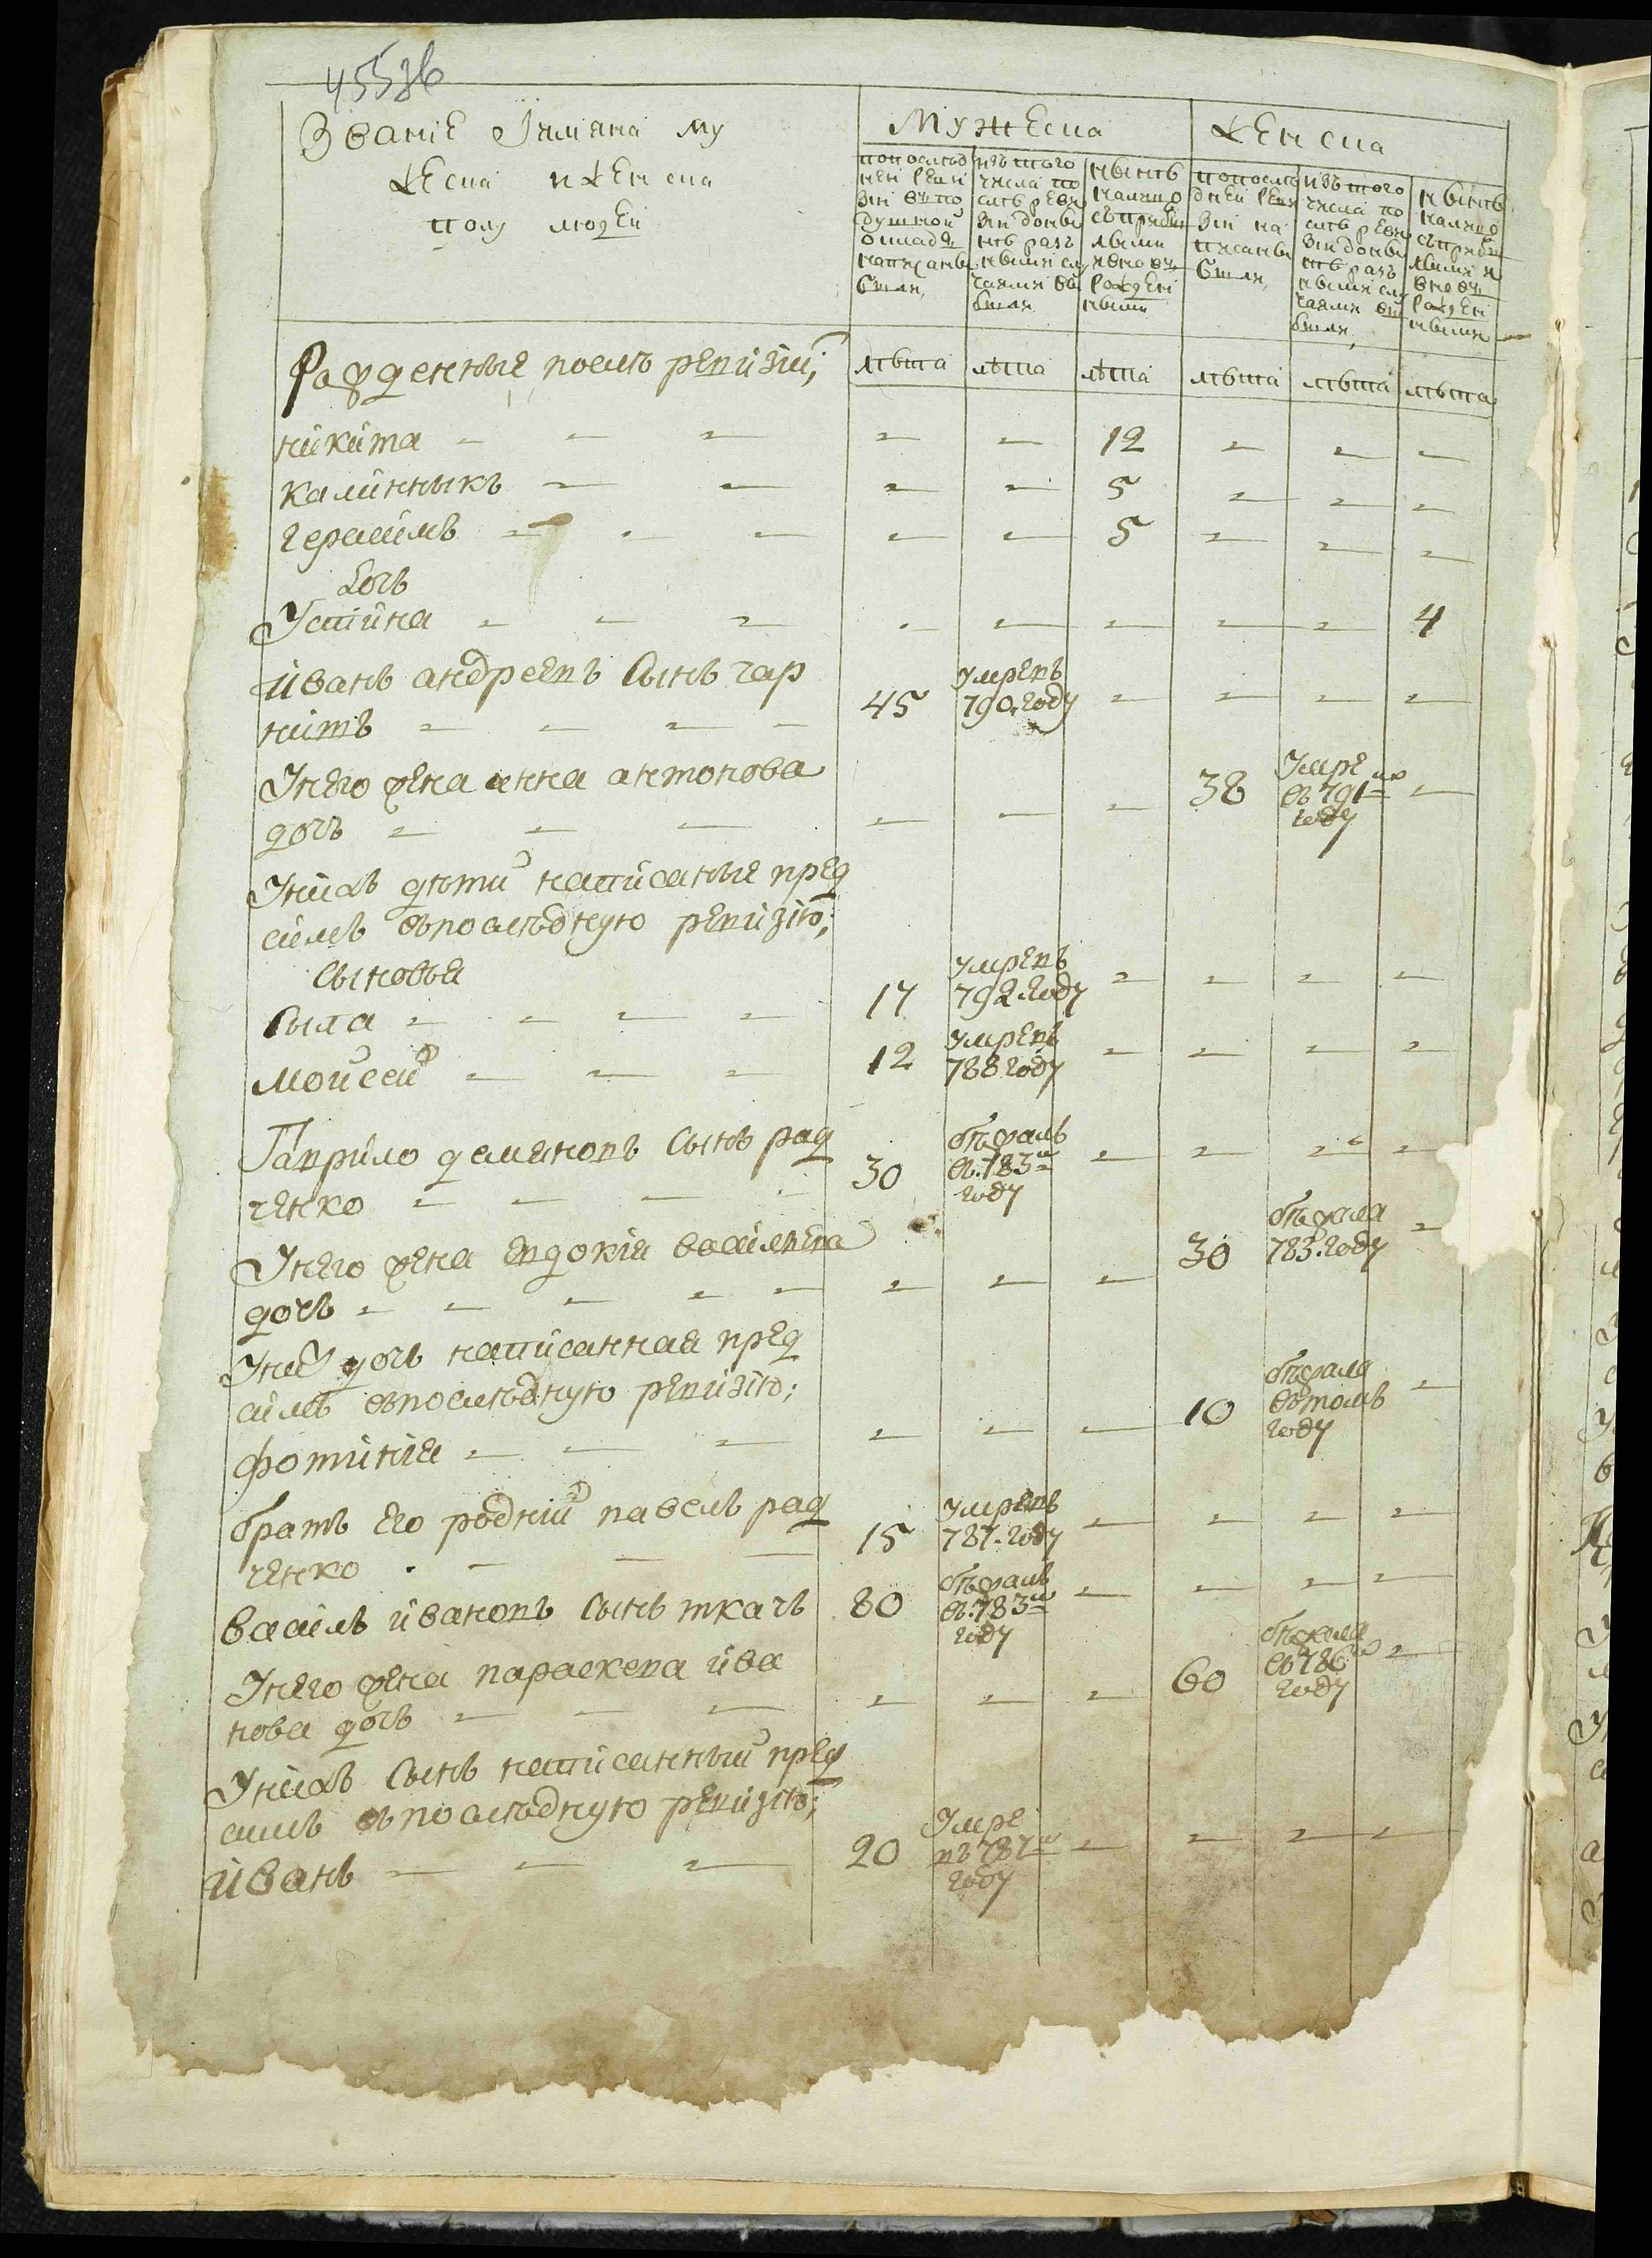 455зв
Званіе Їимяна му
жеска и женска
полу людей
Мужеска
Женска
попослѣд
ней реви
зіи въпо
душной
окладъ
написаны
были,
изътого
числа по
слѣ реви
зіи доны
нѣ разъ
ными слу
чаями вы
были
нынѣ
налицо
съприбы
лыми
ивновъ
рожден
ными
попослѣ
дней реви
зіи на
писаны
были,
изътого
числа по
слѣ реви
зіи доны
нѣ разъ
ными слу
чаями вы
были,
нынѣ
налицо
съприбы
лыми и
вновъ
рожден
ными
Рожденные послѣ ревизіи; лѣта лѣта лѣта лѣта лѣта лѣта
никита - - - - - 12 - - -
калинныкъ - - - - 5 - - -
герасимъ - - - - - 5 - - -
Дочь
Устина - - - - - - - - 4
иванъ андреевъ Сынъ чар
нитъ - - - - 45 умревъ 790. году - - - -
Унего жена анна антонова
дочь - - - - - - 38 умре въ 791м году -
Унихъ дѣти написаные пред
симъ въпослѣдную ревизію;
Сыновья
Сыла - - - - 17 умревъ 792 году - - - -
мойсей - - - 12 умревъ 788 году - - - -
Гаврило демяновъ Сынъ рад
ченко - - - - 30 бѣжалъ въ. 783м году - - - -
Унего жена евдокія васильева
дочь - - - - - - - - 30 бѣжала 783. году -
Уней дочь написанная пред
симъ въпослѣдную ревизію;
фотинія - - - - - - 10 бѣжала втомъ году -
братъ его родній павелъ рад
ченко - - - 15 умревъ 787. году - - - -
василь ивановъ Сынъ ткачъ 80 бѣжалъ въ. 783м году - - - -
Унего жена параскева ива
нова дочь - - - - - - 60 бѣжала въ 786м году -
Унихъ Сынъ написанный пред
симъ въпослѣдную ревизію;
иванъ - - - 20 Умре въ 787м году - - - -